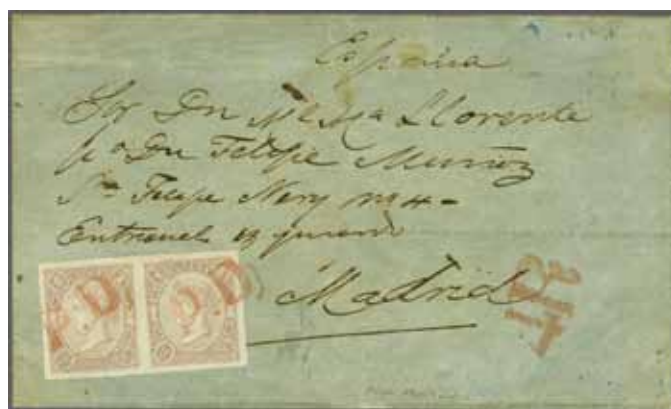 España
Sor Dn Ma Llorente
po Dn Felipe Muñoz
Sn Felipe Nery no 4-
Entresuelo izquierda
Madrid
P.D. P.D.